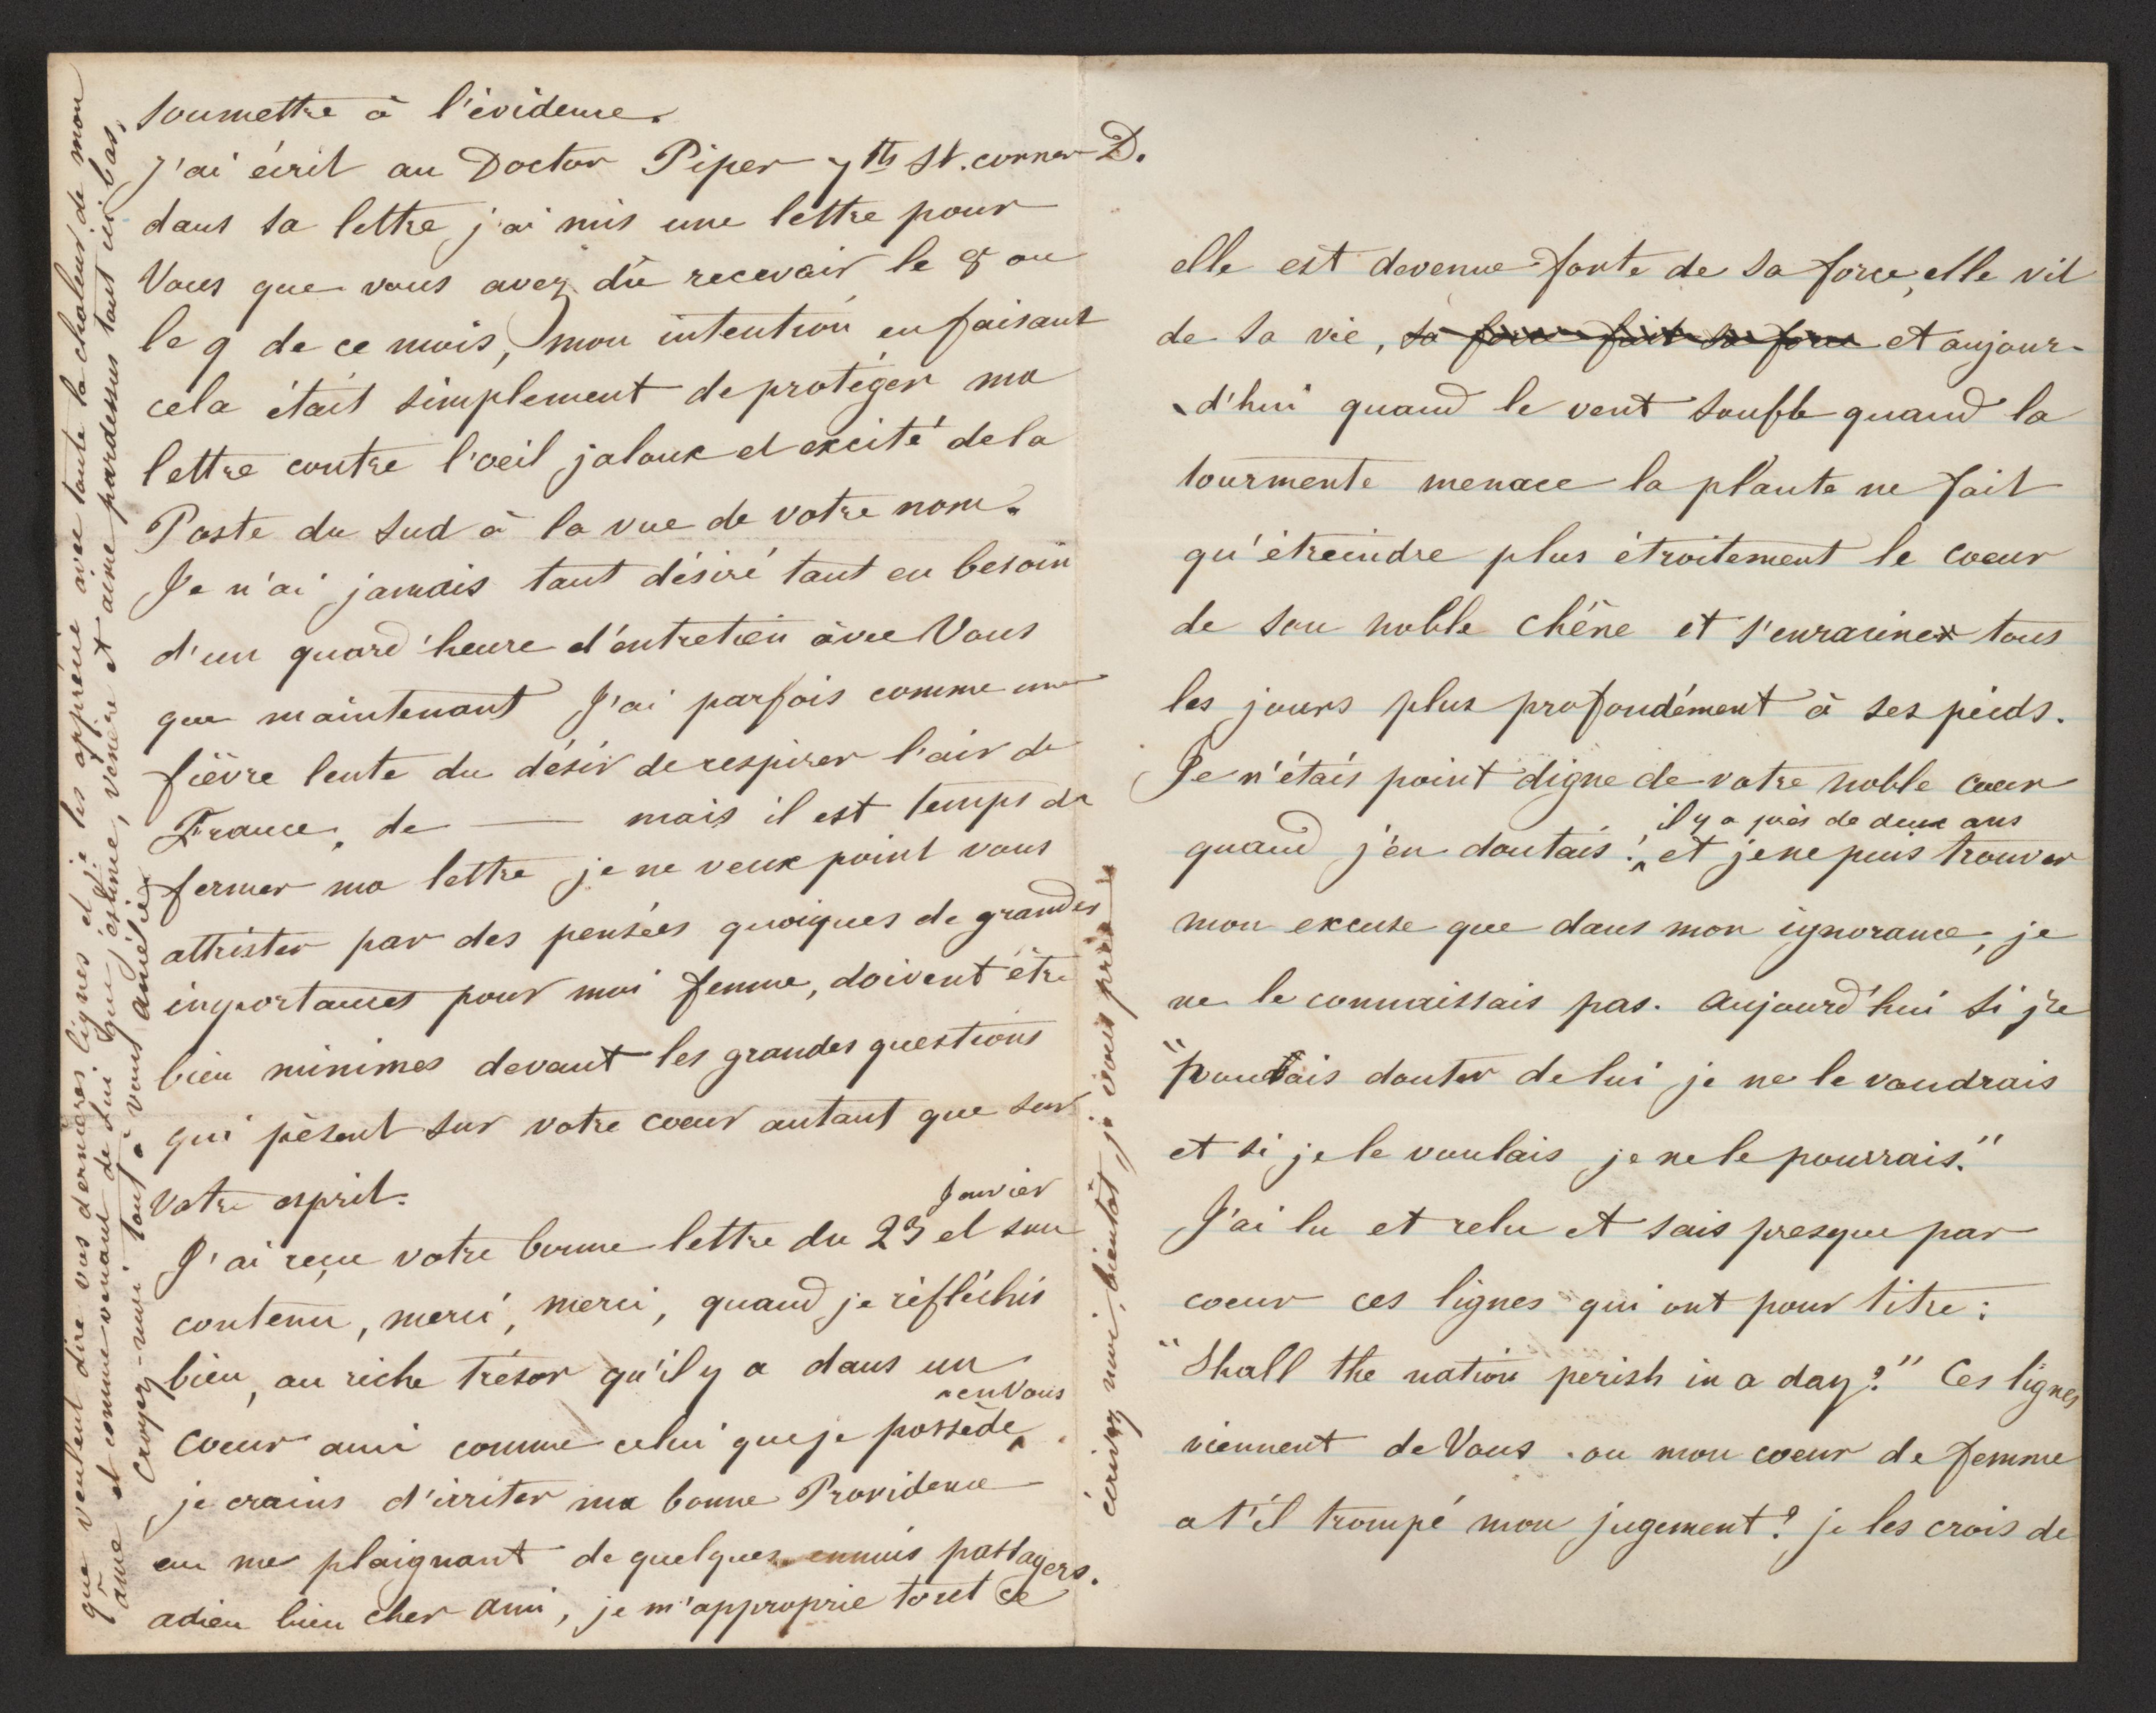 soumettre à l'évidence.
J'ai écrit au Doctor Piper 7th St. corner D.
dans sa lettre j'ai mis une lettre pour
Vous que vous avez dû recevoir le 8 ou
le 9 de ce mois, mon intention en faisant
cela était simplement de protéger ma
lettre contre l'oeil jaloux et excité de la
Poste du Sud à la vue de votre nom.
Je n'ai jamais tant désiré tant eu besoin
d'un quard'heure d'entretien avec Vous
que maintenant J'ai parfois comme une
fièvre lente du désir de respirer l'air de
France, de — mais il est temps de
fermer ma lettre je ne veux point vous
attrister par des pensées quoiques de grandes
importances pour moi femme, doivent être
bien minimes devant les grandes questions
qui pèsent sur votre coeur autant que sur
votre esprit.
J'ai reçue votre bonne lettre du 23 Janvier et son
contenu, merci, merci, quand je réfléchis
bien, au riche trésor qu'il y a dans un
coeur ami comme celui que je possède en Vous
je crains d'irriter ma bonne Providence
en me plaignant de quelques ennuis passagers.
adieu bien cher ami, je m'approprie tout ce
que veulent dire vos dernières lignes et je les apprécie avec toute la chaleur de mon
âme et comme venant de lui que j'estime, vénère et aime pardessus tout ici bas,
Croyez-moi tout à vous amélie.
écrivez moi, bientôt je vous prie
elle est devenue forte de sa force, elle vit
de sa vie, sa force fait sa force et aujour-
d'hui quand le vent souffle quand la
tourmente menace la plante ne fait
qu'étreindre plus étroitement le coeur
de son noble chêne et s'enracine tous
les jours plus profondément à ses pieds.
Je n'étais point digne de votre noble coeur
il y a près de deux ans
quand j'en doutais! et je ne puis trouver
mon excuse que dans mon ignorance, je
ne le connaissais pas. aujourd'hui si je
"pouvais douter de lui je ne le voudrais
et si je le voulais je ne le pourrais."
J'ai lu et relu et sais presque par
coeur ces lignes qui ont pour titre:
"Shall the nation perish in a day?" Ces lignes
viennent de Vous ou mon coeur de femme
a t'il trompé mon jugement? je les crois de